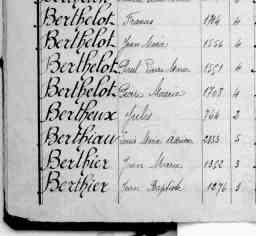 Berthelot Francis 1744 4
Berthelot Jean Marie 1556 4
Berthelot Paul Pierre Marie 1551 4
Berthelot Pierre Marie 1703 4
Bertheux Jules 764 2
Berthiau Louis Marie 2833 5
Berthier Jean Marie 1352 3
Berthier Jean Baptiste 1276 5